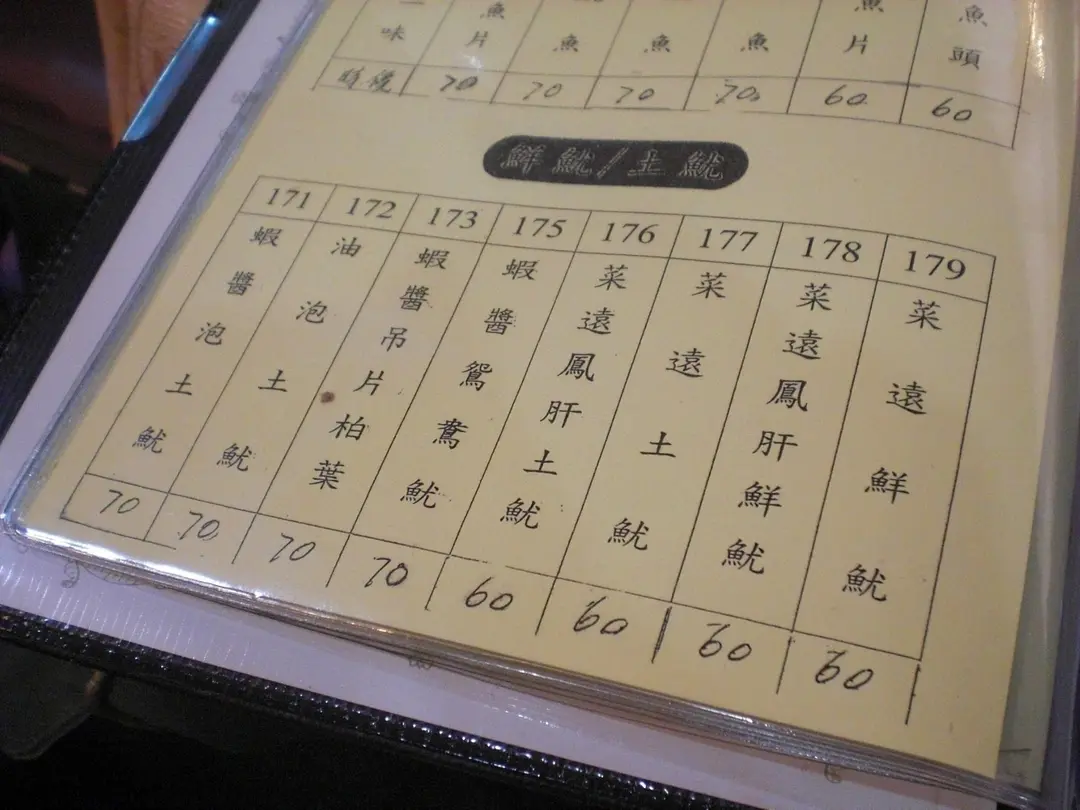 味
魚片
魚
魚
魚
魚片
魚頭
70 70 70 70 60 60
鮮魷/土魷
171 172 173 175 176 177 178 179
蝦醬泡土魷
油泡土魷
蝦醬吊片柏葉
蝦醬鴛鴦魷
菜遠鳳肝土魷
菜遠土魷
菜遠鳳肝鮮魷
菜遠鮮魷
70 70 70 70 60 60 60 60